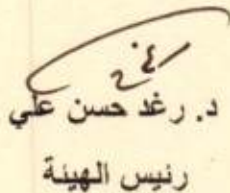 د. رغد حسن علي
رئيس الهيئة